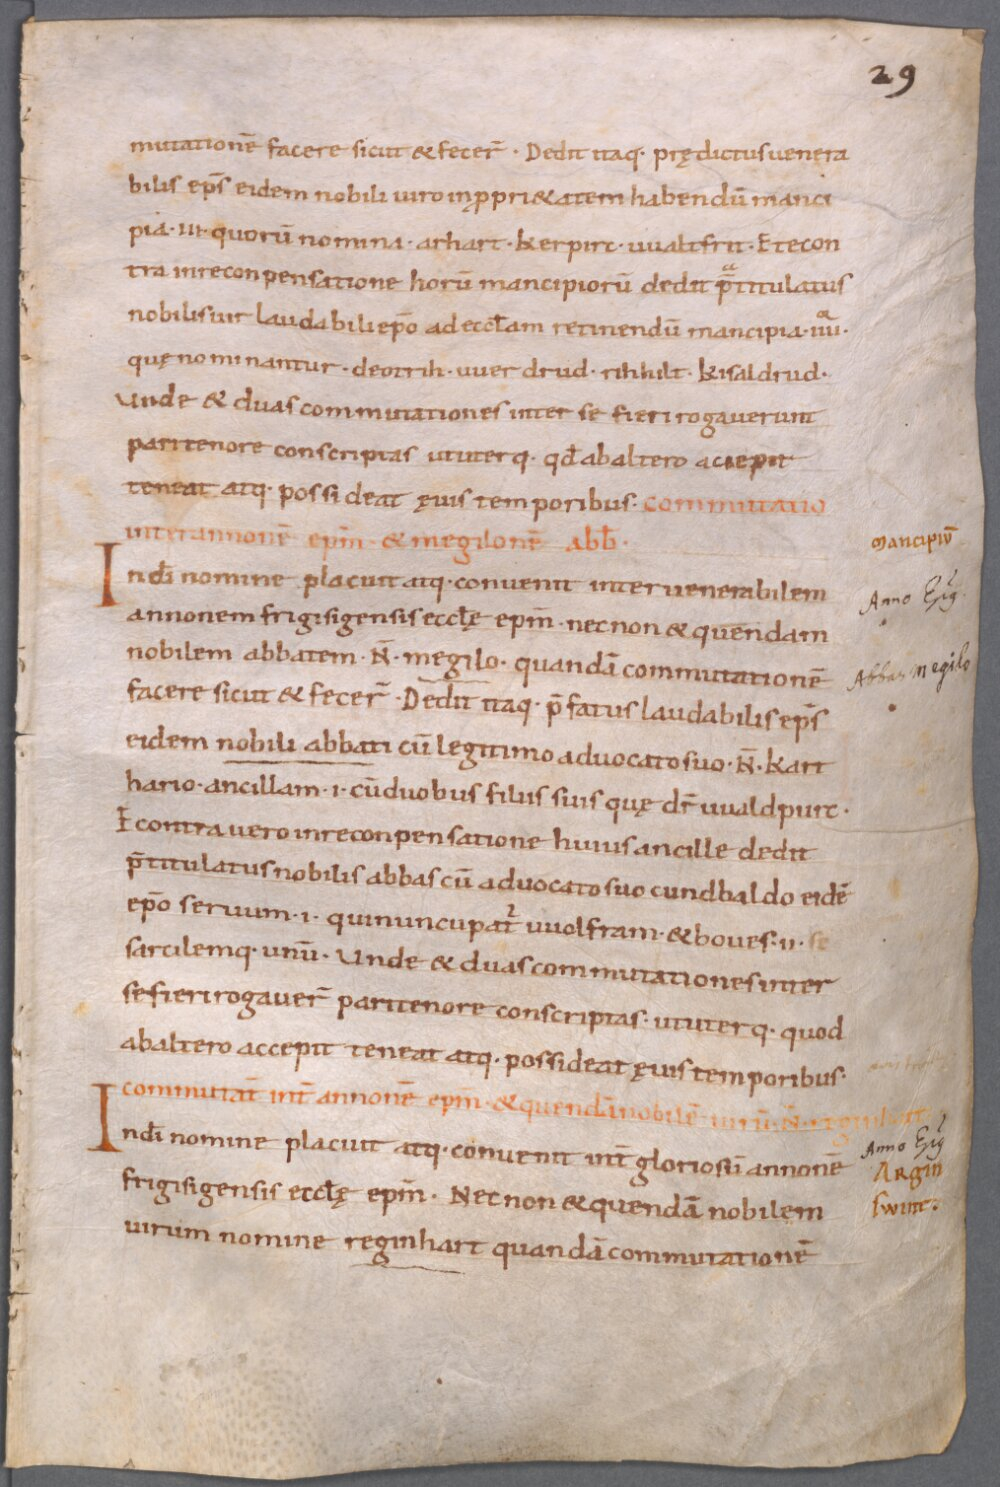 29
mutationē facere sicut & fecer̄ · Dedit itaq· prędictus venera
bilis ep̄s eidem nobili viro in ꝓpri&atem habendū manci
pia · iii · quorū nomina · arhart · kerpirc · uualtfrit · Et econ
tra in reconpensatione horū mancipiorū dedit p̄titulatus
nobilis vir laudabili ep̄o ad eccl̄am retinendū mancipia · iiii ·
quę nominantur · deotrih · uuerdrud · rihhilt · kisaldrud ·
Unde & duas commutationes inter se fieri rogaverunt
pari tenore conscriptas ut uterq· qd̄ ab altero accepit
teneat atq· possideat ęvis temporibus · commutatio
inter annonē ep̄m · & megilonē abb̄ ·
In dī nomine placuit atq· convenit inter venerabilem
mancipiū
annonem frigisigensis eccl̄ę ep̄m · nec non & quendam
Anno Ep̄g
nobilem abbatem · N̄ · megilo · quandā commutationē
Abbas Megilo
facere sicut & fecer̄ · Dedit itaq· p̄fatus laudabilis ep̄s
eidem nobili abbati cū legitimo advocato suo · N̄ · kart
hario · ancillam · i · cū duobus filiis suis quę dr̄ uualdpurc ·
Econtra vero in reconpensatione huius ancille dedit
p̄titulatus nobilis abbas cū advocato suo cundbaldo eidē
ep̄o servum · i · qui nuncupat᷑ uuolfram · & boves · ii · se
sarcilemq· unū · Unde & duas commutationes inter
se fieri rogaver̄ pari tenore conscriptas · ut uterq· quod
ab altero accepit teneat atq· possideat ęvis temporibus ·
commutat̄ int̄ annonē ep̄m · & quendā nobilē virū · N̄ · reginhart
In dī nomine placuit atq· convenit int̄ gloriosū annonē
Anno Ep̄g
frigisigensis eccl̄ę ep̄m · Nec non & quendā nobilem
Argin
swint:
virum nomine reginhart quandā commutationē